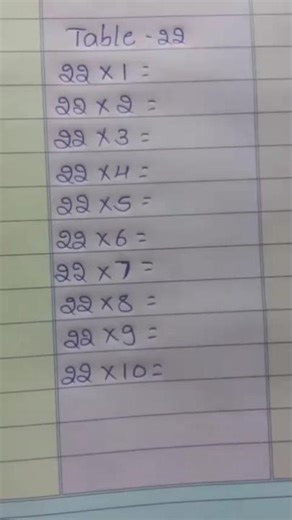 Table - 22
22 × 1 =
22 × 2 =
22 × 3 =
22 × 4 =
22 × 5 =
22 × 6 =
22 × 7 =
22 × 8 =
22 × 9 =
22 × 10 =